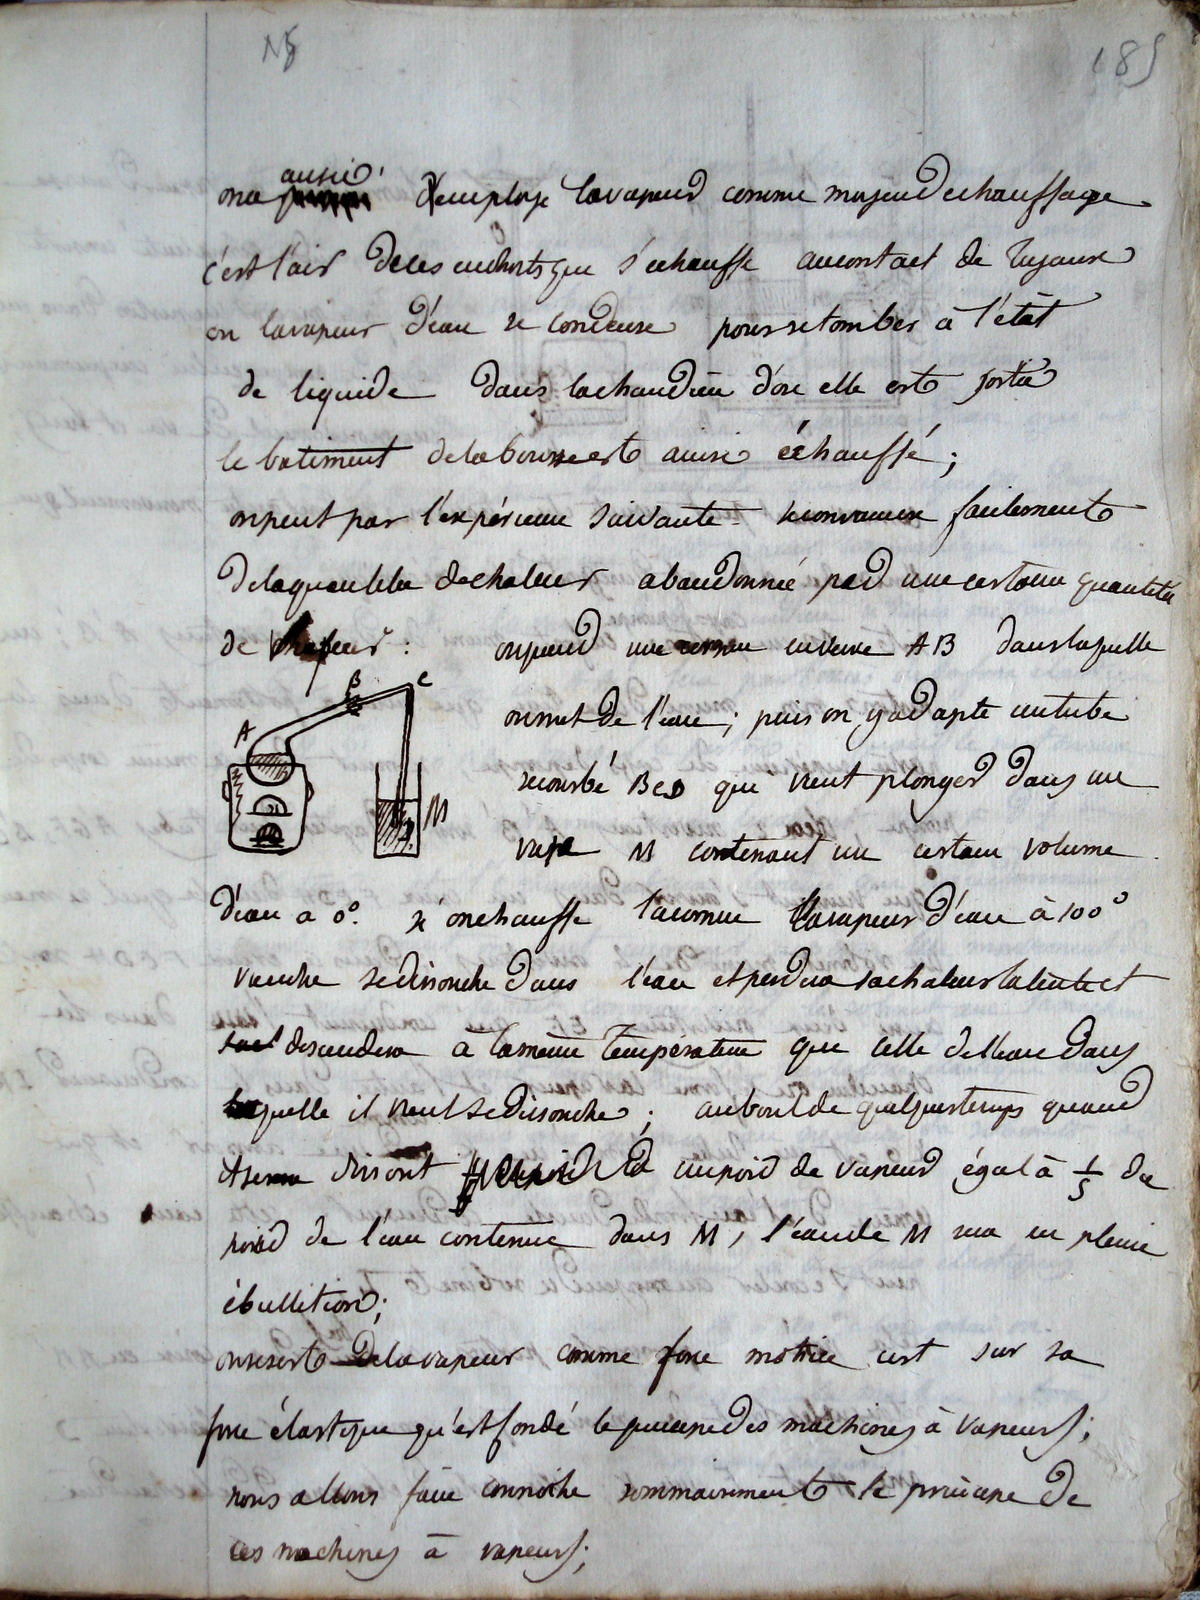 185
on a aussi employe la vapeur comme moyen d echauffage
c'est l'air de ces endroits que s'echauffe au contact de tuyaux
ou la vapeur d'eau se condense pour retomber à l'état
de liquide dans la chaudiere d'ou elle est sortie
le batiment de la bourse est ainsi échauffé ;
on peut par l'expérience suivante se convaincre facilement
de la quantitée de chaleur abandonnée par une certaine quantitée
de vapeur : on prend une cornue en verre AB dans laquelle
B C
A
on met de l'eau ; puis on y adapte un tube
recourbé BCD qui vient plonger dans un
M
vase M contenant un certain volume
d'eau a 0°. si on chauffe la cornue la vapeur d'eau à 100°
viendra se dissoudre dans l'eau et perdra sa chaleur latente et
descendra à la même température que celle de l'eau dans
laquelle il vient se dissoudre ; au bout de quelques temps quand
il sera dissout un poid de vapeur égal à 1/5 du
poid de l'eau contenue dans M, l'eau de M sera en pleine
ébullition ;
on se sert de la vapeur comme force motrice c'est sur sa
force élastique qu'est fondé le principe des machines à vapeurs ;
nous allons faire connoitre sommairement le principe de
ces machines à vapeurs ;